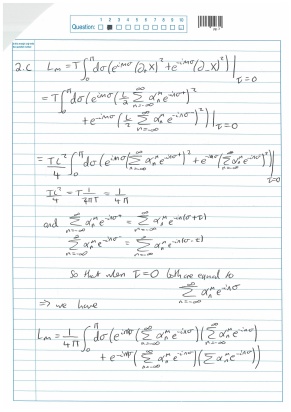 Question: 1 2 3 4 5 6 7 8 9 10
2.c L_m = T∫_0^π dσ(e^{imσ}(∂_+X)^2 + e^{-imσ}(∂_-X)^2)|_{τ=0}
= T∫_0^π dσ(e^{imσ}(l/2 Σ_{n=-∞}^∞ α_n^μ e^{-inσ^+})^2
+ e^{-imσ}(l/2 Σ_{n=-∞}^∞ α_n^μ e^{-inσ^-})^2)|_{τ=0}
= Tl^2/4 ∫_0^π dσ(e^{imσ}(Σ_{n=-∞}^∞ α_n^μ e^{-inσ^+})^2 + e^{-imσ}(Σ_{n=-∞}^∞ α_n^μ e^{-inσ^-})^2)|_{τ=0}
Tl^2/4 = T 1/4πT = 1/4π
and Σ_{n=-∞}^∞ α_n^μ e^{-inσ^+} = Σ_{n=-∞}^∞ α_n^μ e^{-in(σ+τ)}
Σ_{n=-∞}^∞ α_n^μ e^{-inσ^-} = Σ_{n=-∞}^∞ α_n^μ e^{-in(σ-τ)}
So that when τ=0 both are equal to
Σ_{n=-∞}^∞ α_n^μ e^{-inσ}
⇒ we have
L_m = 1/4π ∫_0^π dσ(e^{imσ}(Σ_{n=-∞}^∞ α_n^μ e^{-inσ})(Σ_{n=-∞}^∞ α_n^μ e^{-inσ})
+ e^{-imσ}(Σ_{n=-∞}^∞ α_n^μ e^{-inσ})(Σ α_n^μ e^{-inσ}))